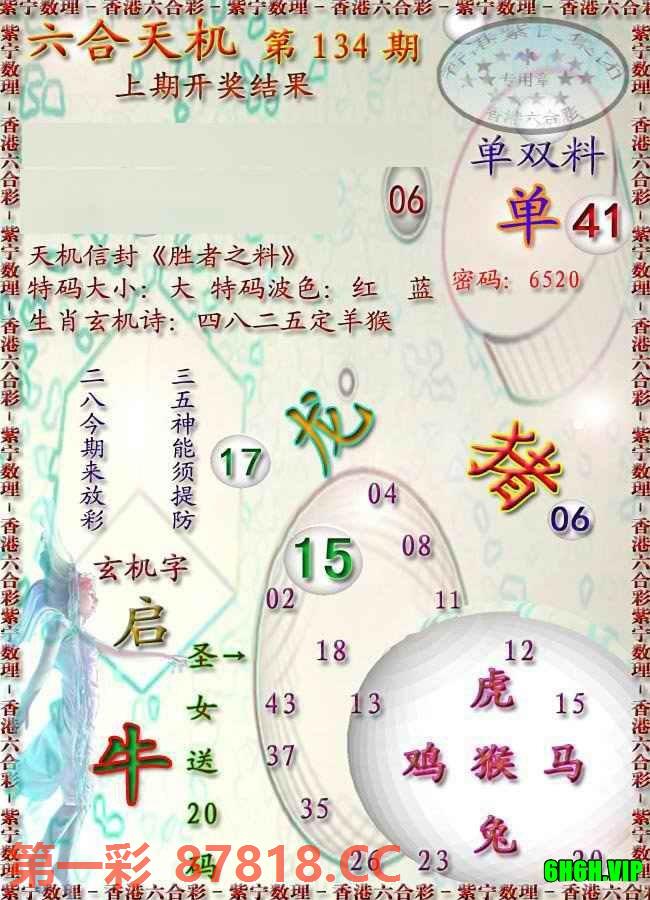 紫宁数理－香港六合彩－紫宁数理－香港六合彩－紫宁数理－香港六合彩
六合天机 第 134 期
上期开奖结果
香港紫民集团
专用章
香港六合彩
单双料
06
单 41
天机信封《胜者之料》
特码大小：大 特码波色：红 蓝
密码：6520
生肖玄机诗：四八二五定羊猴
三五神能须提防
二八今期来放彩
龙
17
猪
06
04
15
08
玄机字
启
02
11
圣→
女
送
20
码
18
12
43
13
虎
15
牛
37
鸡 猴 马
35
兔
26
23
20
第一彩 87818.CC
6H6H.VIP
紫宁数理－香港六合彩－紫宁数理－香港六合彩－紫宁数理－香港六合彩